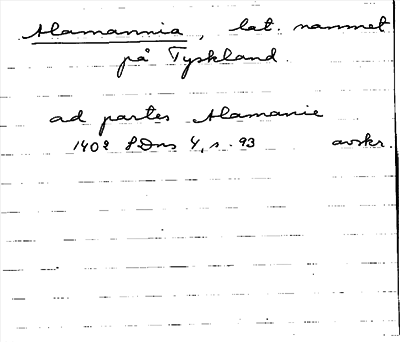 Alamannia, lat. namnet
på Tyskland.
ad partes Alamanie
1402 SDns 4, s. 93 avskr.